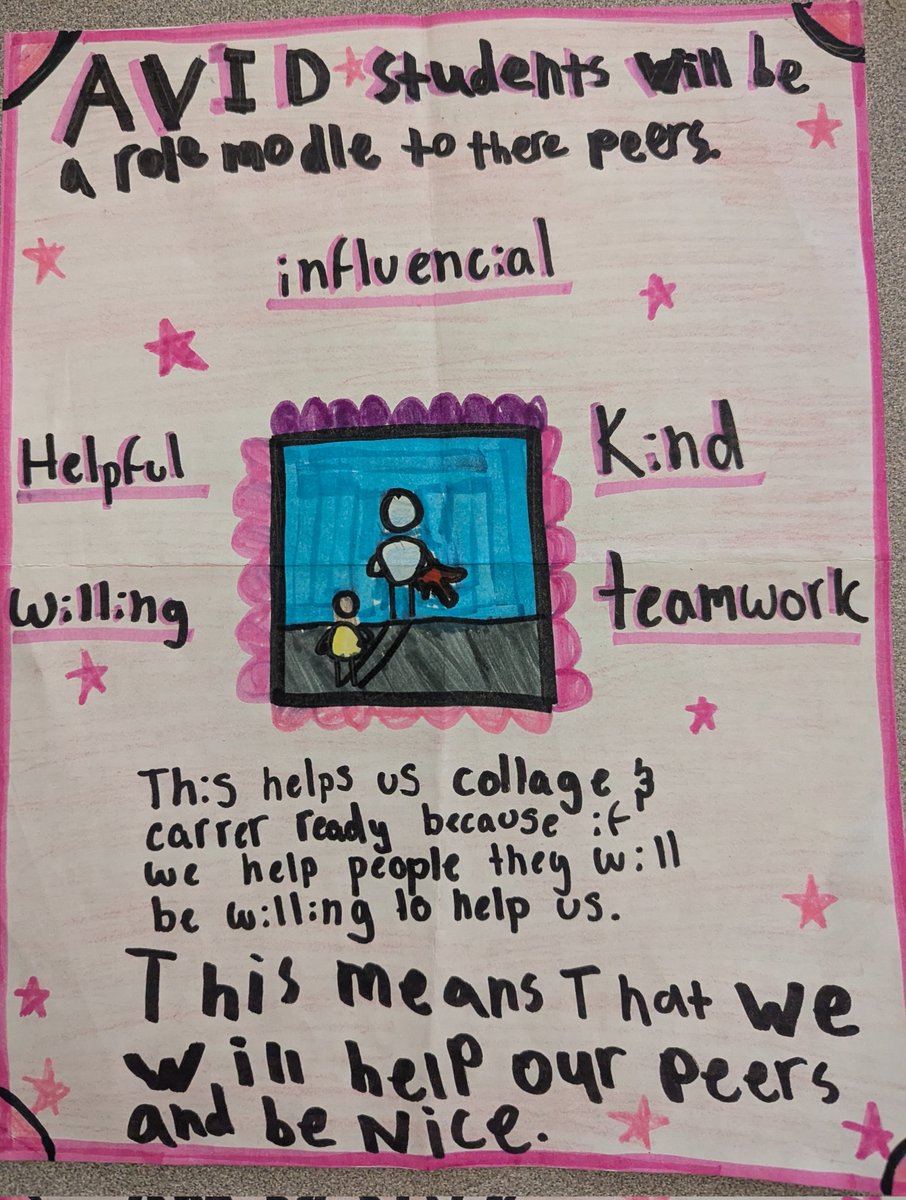 AVID students will be
a role modle to there peers.
influencial
Helpful
Kind
willing
teamwork
This helps us collage &
carrer ready because if
we help people they will
be willing to help us.
This means That we
will help our peers
and be Nice.